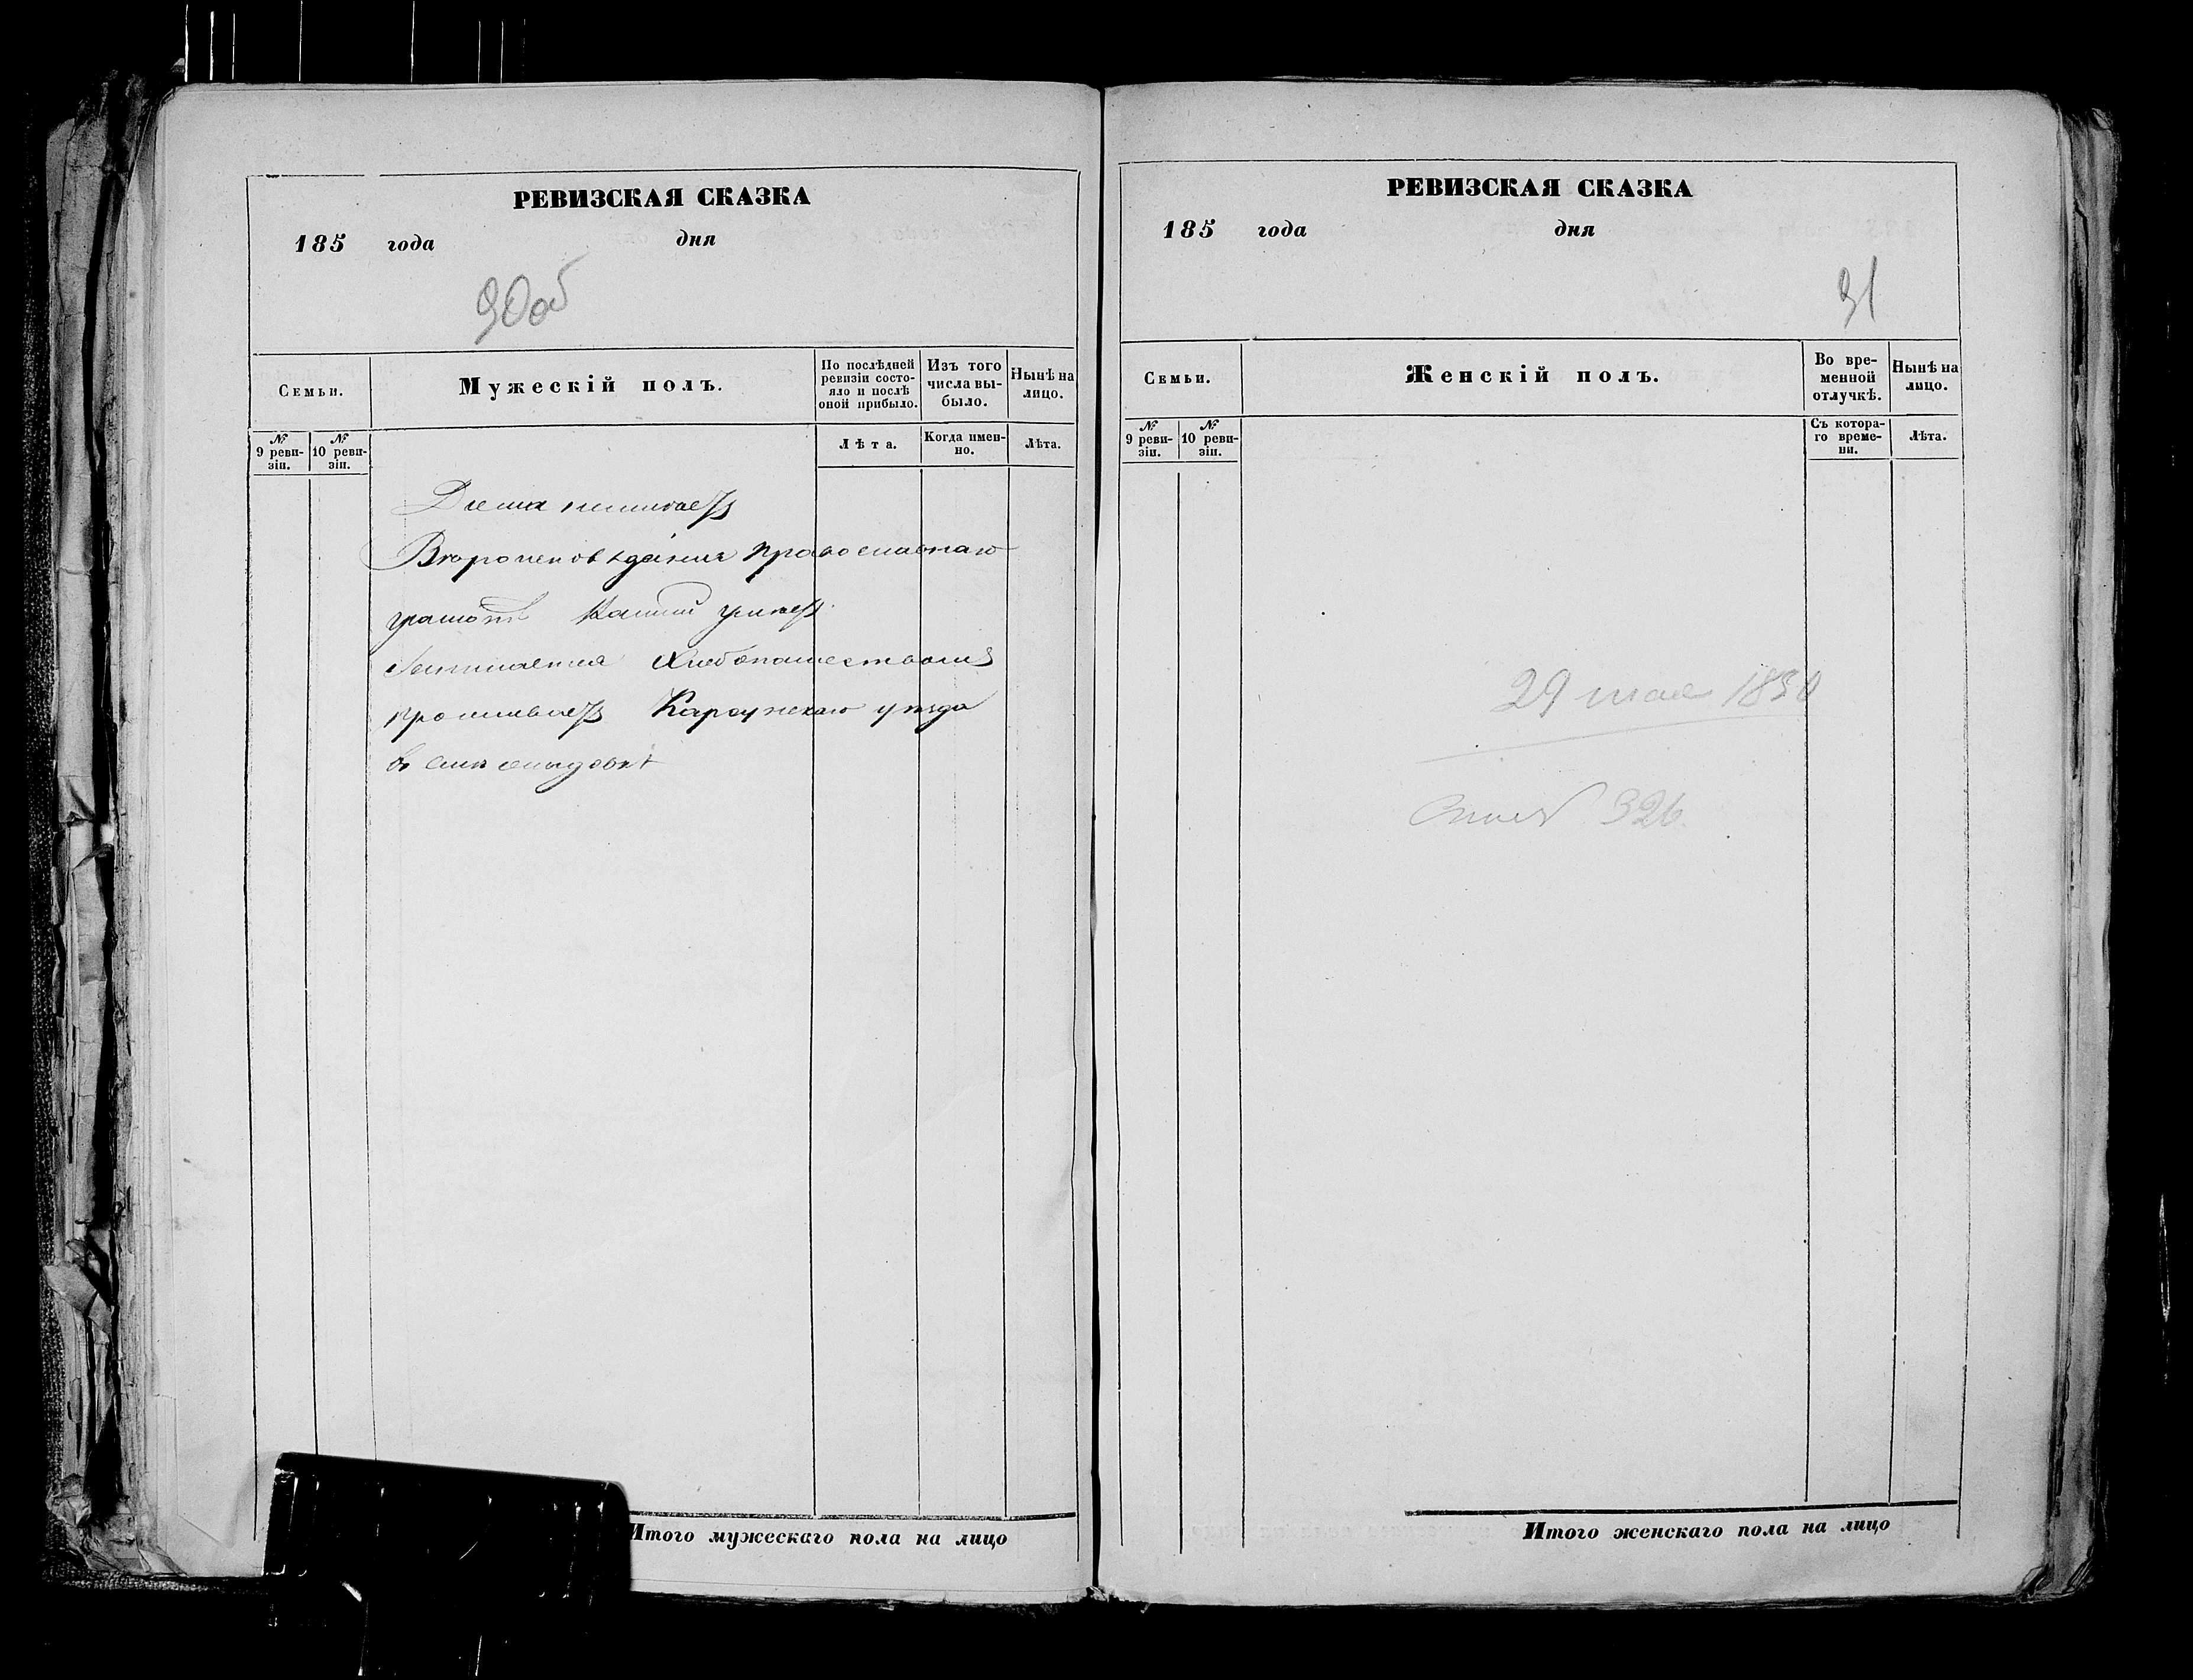 РЕВИЗСКАЯ СКАЗКА
185 года дня
90об
Семьи.
Мужескій полъ.
По послѣдней ревизіи состо-
яло и послѣ
оной прибыло.
Изъ того
числа вы-
было.
Нынѣ на
лицо.
№
9 реви-
зіи.
№
10 реви-
зіи.
Лѣта.
Когда имен-
но.
Лѣта.
православнаго
грамотѣ
занимается хлебопашествомъ
проживаетъ Карсунскаго уезда
въ
Итого мужескаго пола на лицо
РЕВИЗСКАЯ СКАЗКА
185 года дня
91
Семьи.
Женскій полъ.
Во вре-
менной
отлучкѣ.
Нынѣ на
лицо.
№
9 реви-
зіи.
№
10 реви-
зіи.
Съ котора-
го време-
ни.
Лѣта.
29 мая
326
Итого женскаго пола на лицо